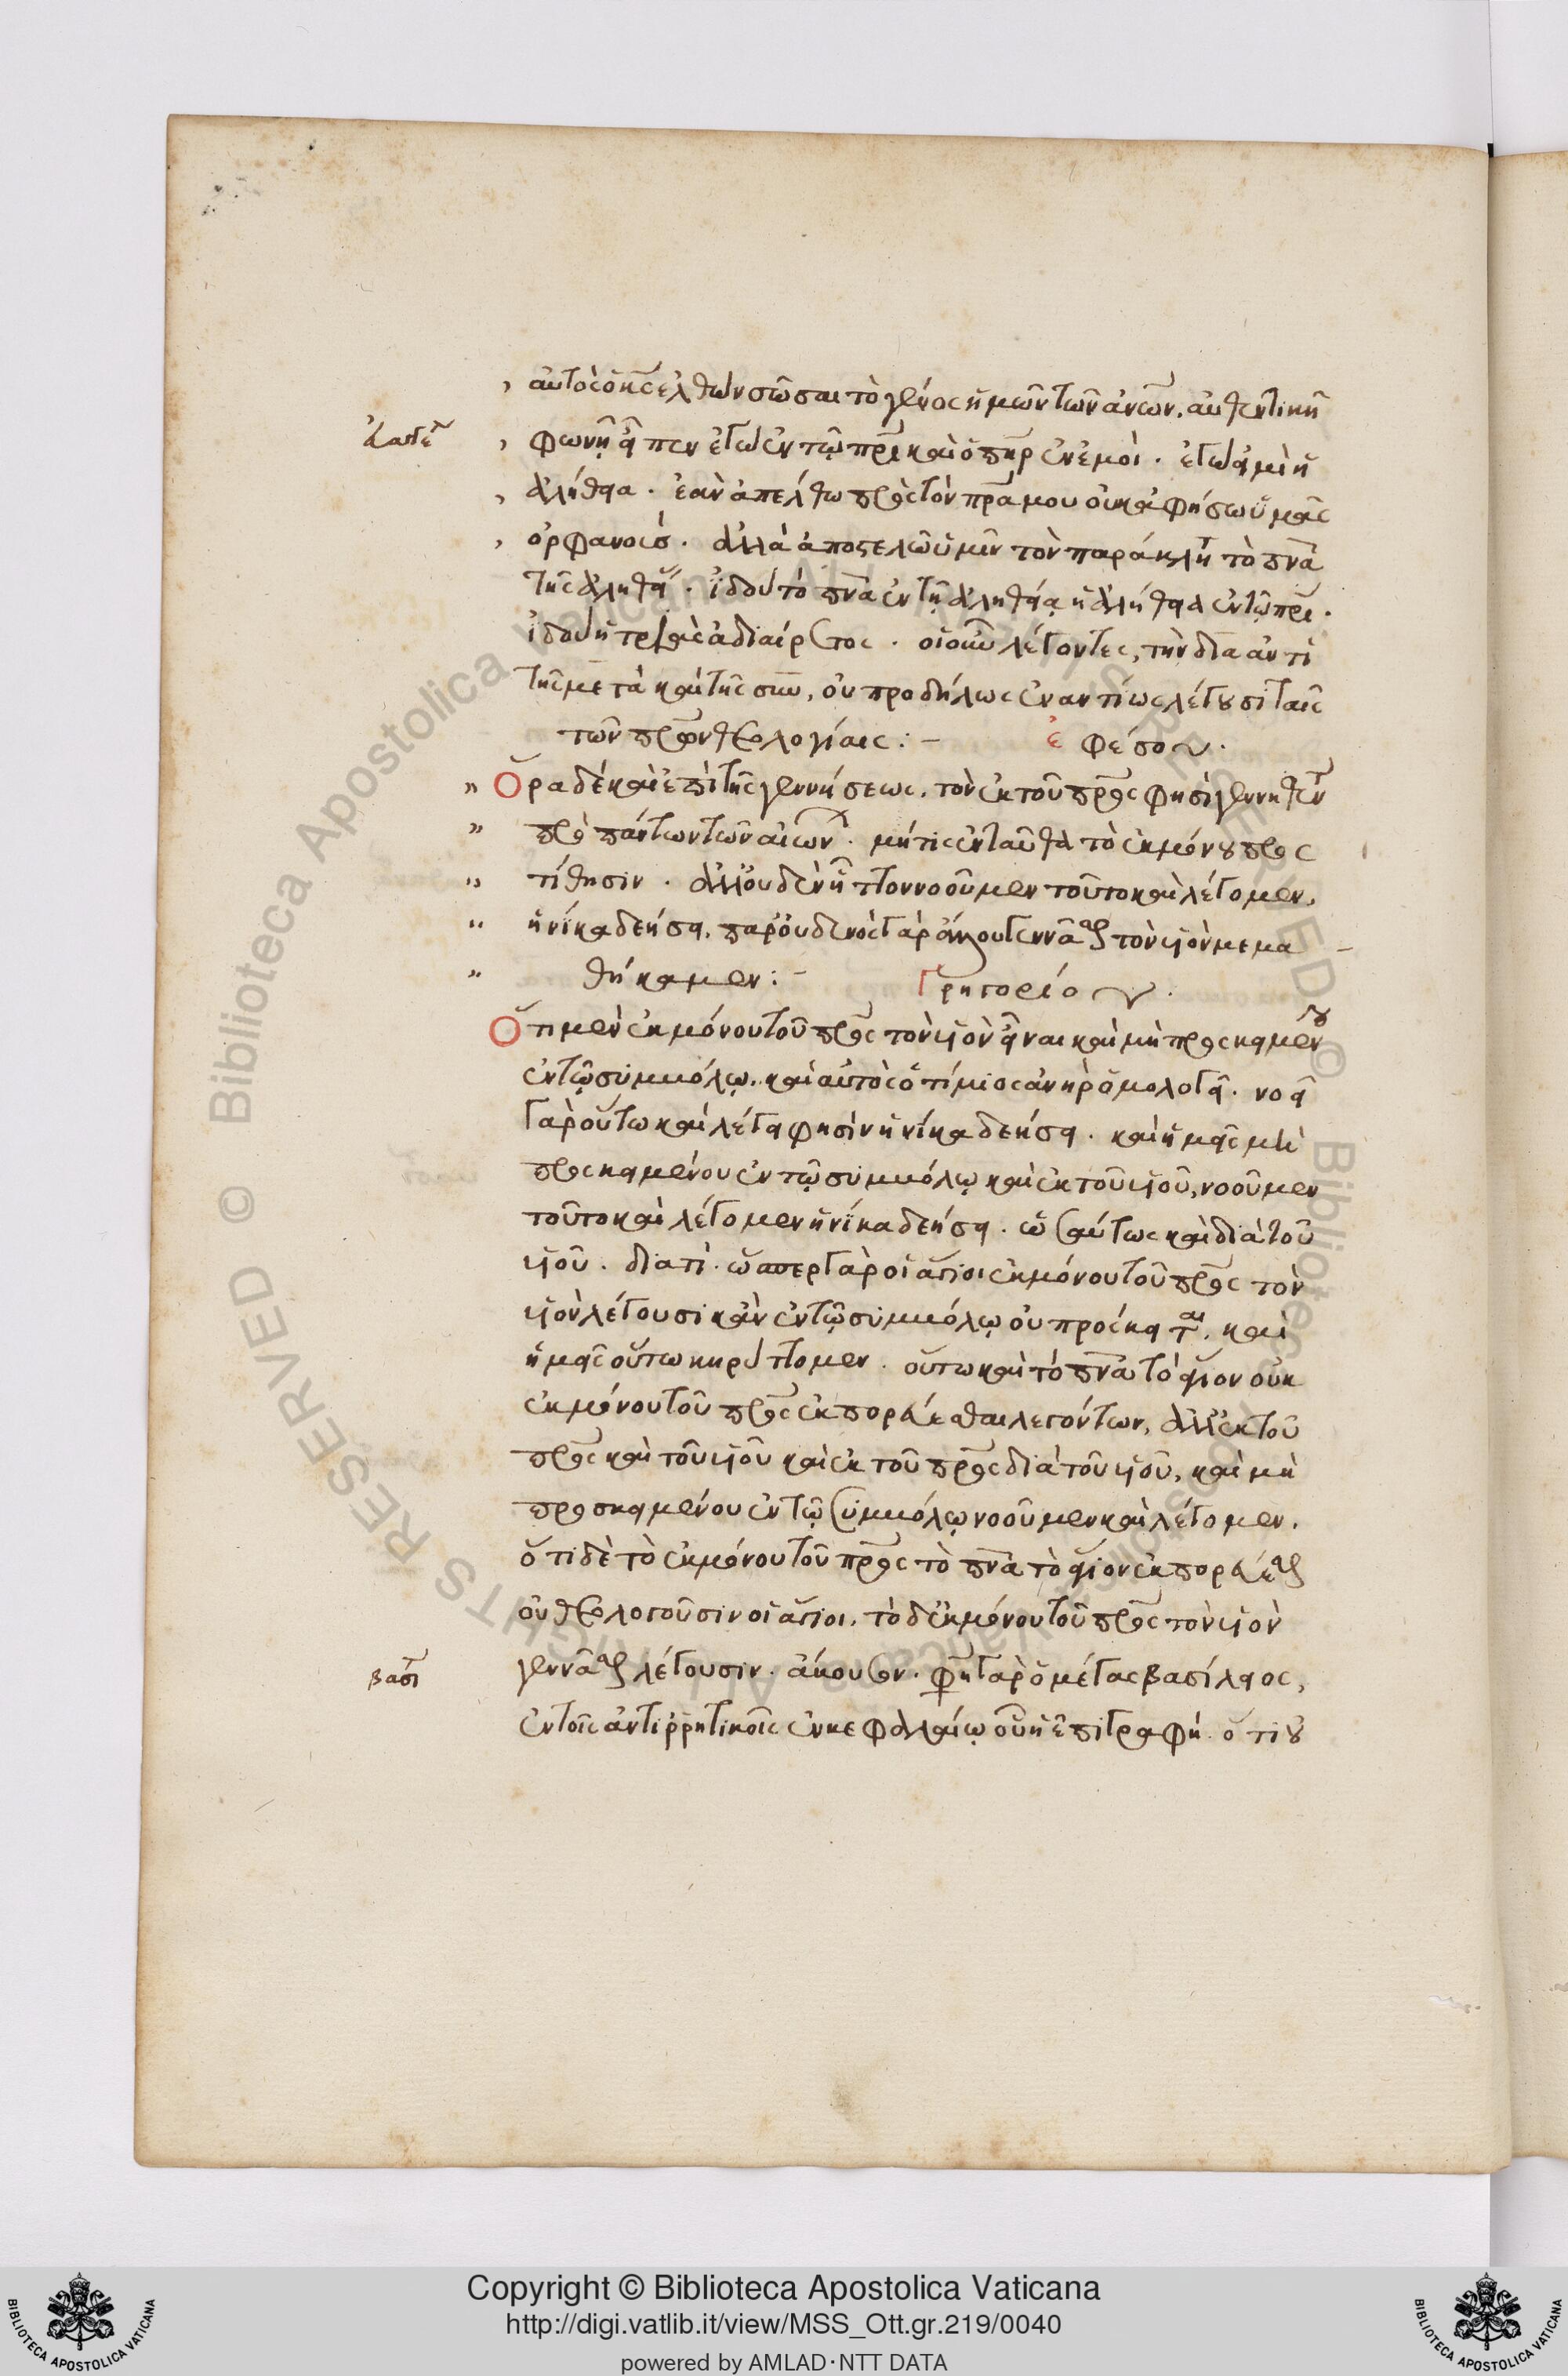 αὐτὸς ὁ κ̅ς ἐλθὼν σῶσαι τὸ γένος ἡμῶν τῶν ἀν̅ων. αὐθεντικῆ
φωνῆ εἶπεν ἐγὼ ἐν τῷ πρ̅ι καὶ ὁ πηρ ἐν ἐμοὶ. ἐγὼ εἰμὶ ἡ
ἀλήθεια. ἐὰν ἀπέλθω πρὸς τὸν πρ̅α μου οὐκ ἀφήσω ὑμᾶς
ὀρφανούσ. ἀλλὰ ἀποστελῶ ὑμῖν τὸν παράκλη̅τ τὸ πν̅α
τῆς ἀληθεί. ἰδοὺ τὸ πν̅α ἐν τῇ ἀληθείᾳ ἡ ἀλήθεια ἐν τῷ πρ̅ι.
ἰδοὺ ἡ τριὰς ἀδιαίρετος. οἱ οὖν λέγοντες, τὴν διὰ ἀντὶ
τῆς μετὰ καὶ τῆς σὺν, οὐ προδήλως ἐναντίως λέγουσι ταῖς
τῶν πρ̅ων θεολογίαις:–   ἐφέσου.
" Ὅρα δὲ καὶ ἐπὶ τῆς γεννήσεως. τὸν ἐκ τοῦ πρ̅ς φησὶ γεννηθέντ
" πρὸ πάντων τῶν αἰώνων. μήτις ἐνταῦθα τὸ ἐκ μόνου προσ
" τίθησιν. ἀλλ' οὐδὲν ἧττον νοοῦμεν τοῦτο καὶ λέγομεν,
" ἡνίκα δεήσει. παρ' οὐδενὸς γὰρ ἄλλου γεννᾶσθαι τὸν υἱὸν μεμα
" θήκαμεν:–   Γρηγορίου.
Ὅτι μὲν ἐκ μόνου τοῦ πρ̅ς τὸν υἱὸν εἶναι καὶ μὴ προσκειμένου
ἐν τῷ συμβόλῳ. καὶ αὐτὸς ὁ τίμιος ἀνὴρ ὁμολογεῖ. νοεῖ
γὰρ οὕτω καὶ λέγει φησὶν ἡνίκα δεήσει. καὶ ἡμεῖς μὴ
προσκειμένου ἐν τῷ συμβόλῳ καὶ ἐκ τοῦ υἱοῦ, νοοῦμεν
τοῦτο καὶ λέγομεν ἡνίκα δεήσει. ὡσαύτως καὶ διὰ τοῦ
υἱοῦ. διατὶ. ὥσπερ γὰρ οἱ ἅγιοι ἐκ μόνου τοῦ πρ̅ς τὸν
υἱὸν λέγουσι κἂν ἐν τῷ συμβόλῳ οὐ πρόσκειται. καὶ
ἡμεῖς οὕτω κηρύττομεν. οὕτω καὶ τὸ πν̅α τὸ ἅγιον οὐκ
ἐκ μόνου τοῦ πρ̅ς ἐκπορεύεσθαι λεγόντων, ἀλλ' ἐκ τοῦ
πρ̅ς καὶ τοῦ υἱοῦ καὶ ἐκ τοῦ πρ̅ς διὰ τοῦ υἱοῦ, καὶ μὴ
προσκειμένου ἐν τῷ συμβόλῳ νοοῦμεν καὶ λέγομεν.
ὅτι δὲ τὸ ἐκ μόνου τοῦ πρ̅ς τὸ πν̅α τὸ ἅγιον ἐκπορεύεσθαι
οὐ θεολογοῦσιν οἱ ἅγιοι, τὸ δ' ἐκ μόνου τοῦ πρ̅ς τὸν υἱὸν
βασι γεννᾶσθαι λέγουσιν. ἄκουσον. φη γὰρ ὁ μέγας βασίλειος,
ἐν τοῖς ἀντιρρητικοῖς ἐν κεφαλαίῳ οὗ ἡ ἐπιγραφή. ὅτι οὐ
Copyright © Biblioteca Apostolica Vaticana
http://digi.vatlib.it/view/MSS_Ott.gr.219/0040
powered by AMLAD·NTT DATA